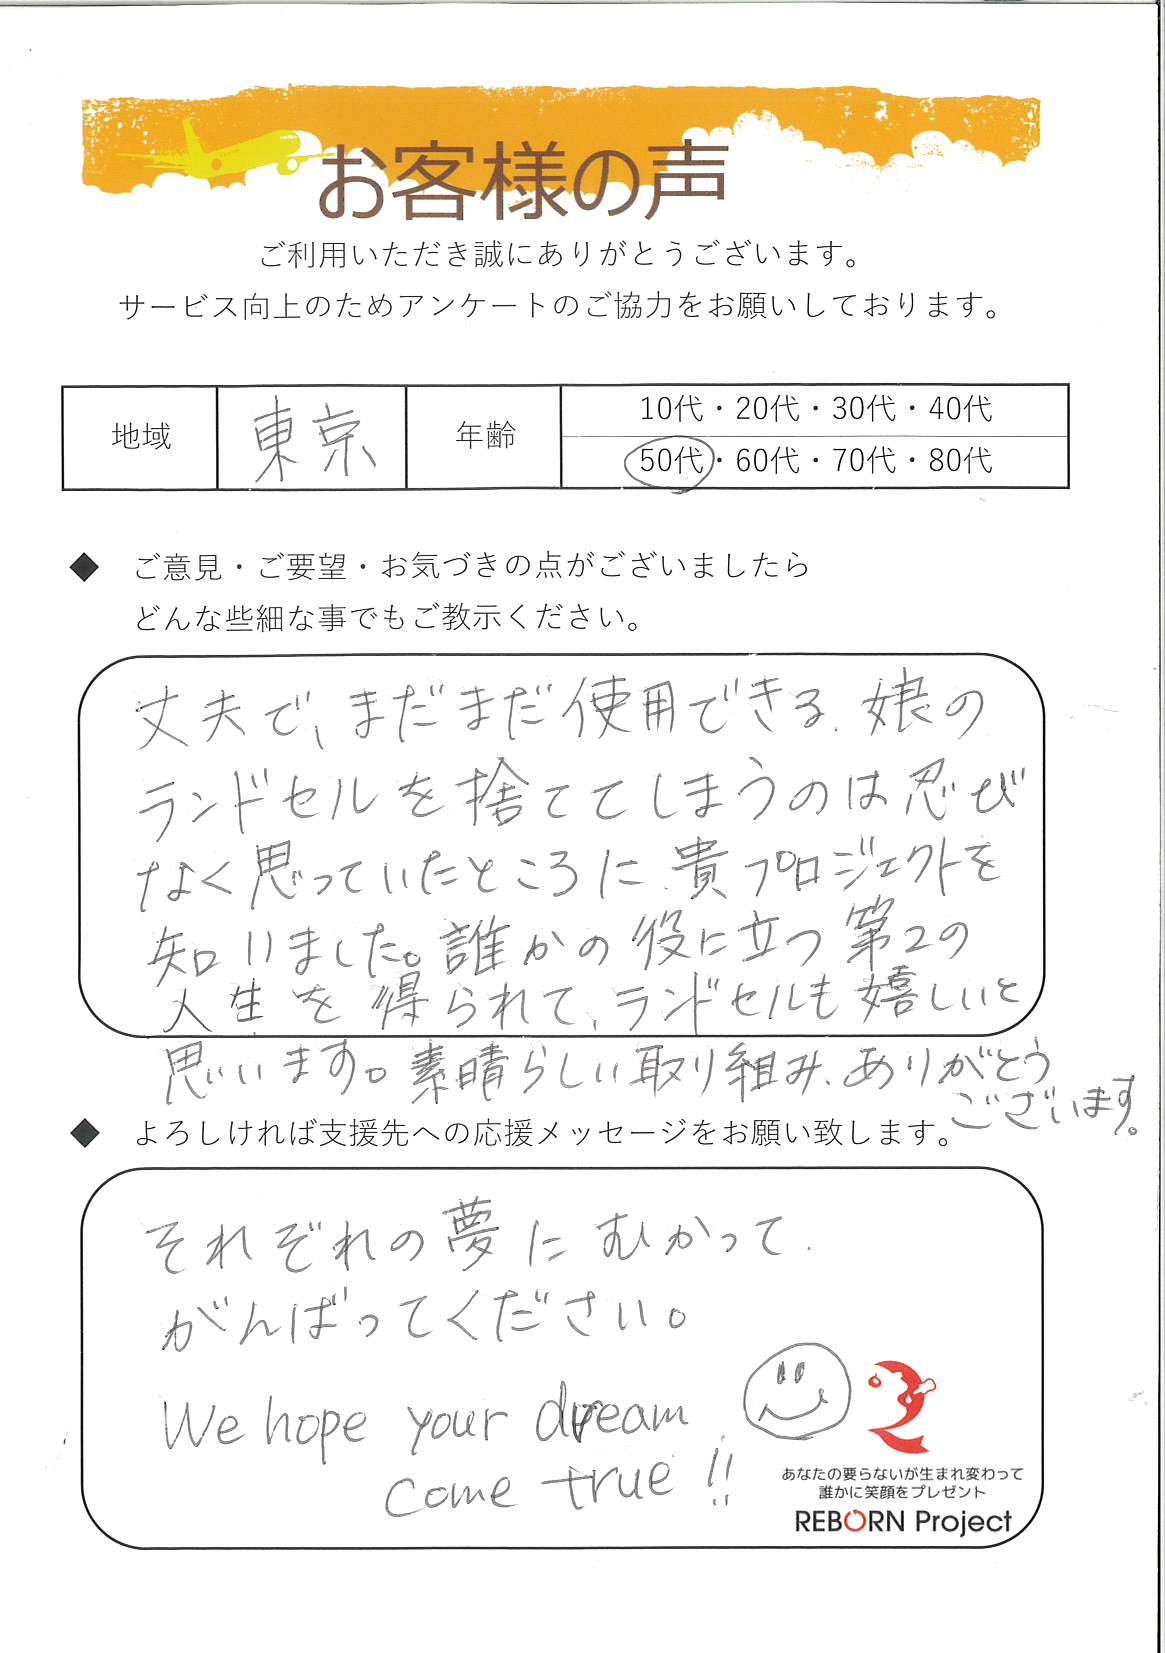 お客様の声
ご利用いただき誠にありがとうございます。
サービス向上のためアンケートのご協力をお願いしております。
地域 東京 年齢 10代・20代・30代・40代
50代・60代・70代・80代
◆ ご意見・ご要望・お気づきの点がございましたら
どんな些細な事でもご教示ください。
丈夫で、まだまだ使用できる、娘の
ランドセルを捨ててしまうのは忍び
なく思っていたところに、貴プロジェクトを
知りました。誰かの役に立つ第2の
人生を得られて、ランドセルも嬉しいと
思います。素晴らしい取り組み、ありがとう
ございます。
◆ よろしければ支援先への応援メッセージをお願い致します。
それぞれの夢にむかって、
がんばってください。
We hope your dream
come true!!
あなたの要らないが生まれ変わって
誰かに笑顔をプレゼント
REBORN Project